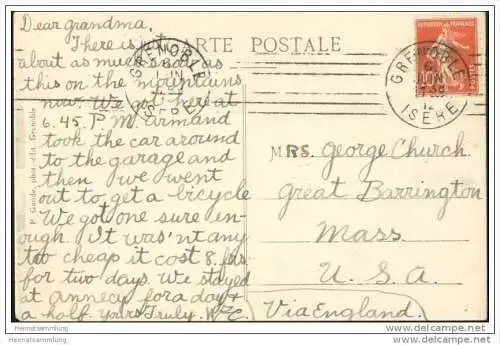 Dear grandma,
There is just
about as much snow as
this on the mountains
now. We got here at
6.45. P M. armand
took the car around
to the garage and
then we went
out to get a bicycle
We got one sure en-
ough. It was'nt any
too cheap it cost 8. frs
for two days. We stayed
at annecy for a day &
a half. yours Truly.
CARTE POSTALE
GRENOBLE
ISERE
GRENOBLE
6
JUIN
12
ISERE
MRS. George Church
Great Barrington
Mass
U. S. A.
Via England.
Heimatsammlung
Heimatsammlung
http://www.delcampe.net